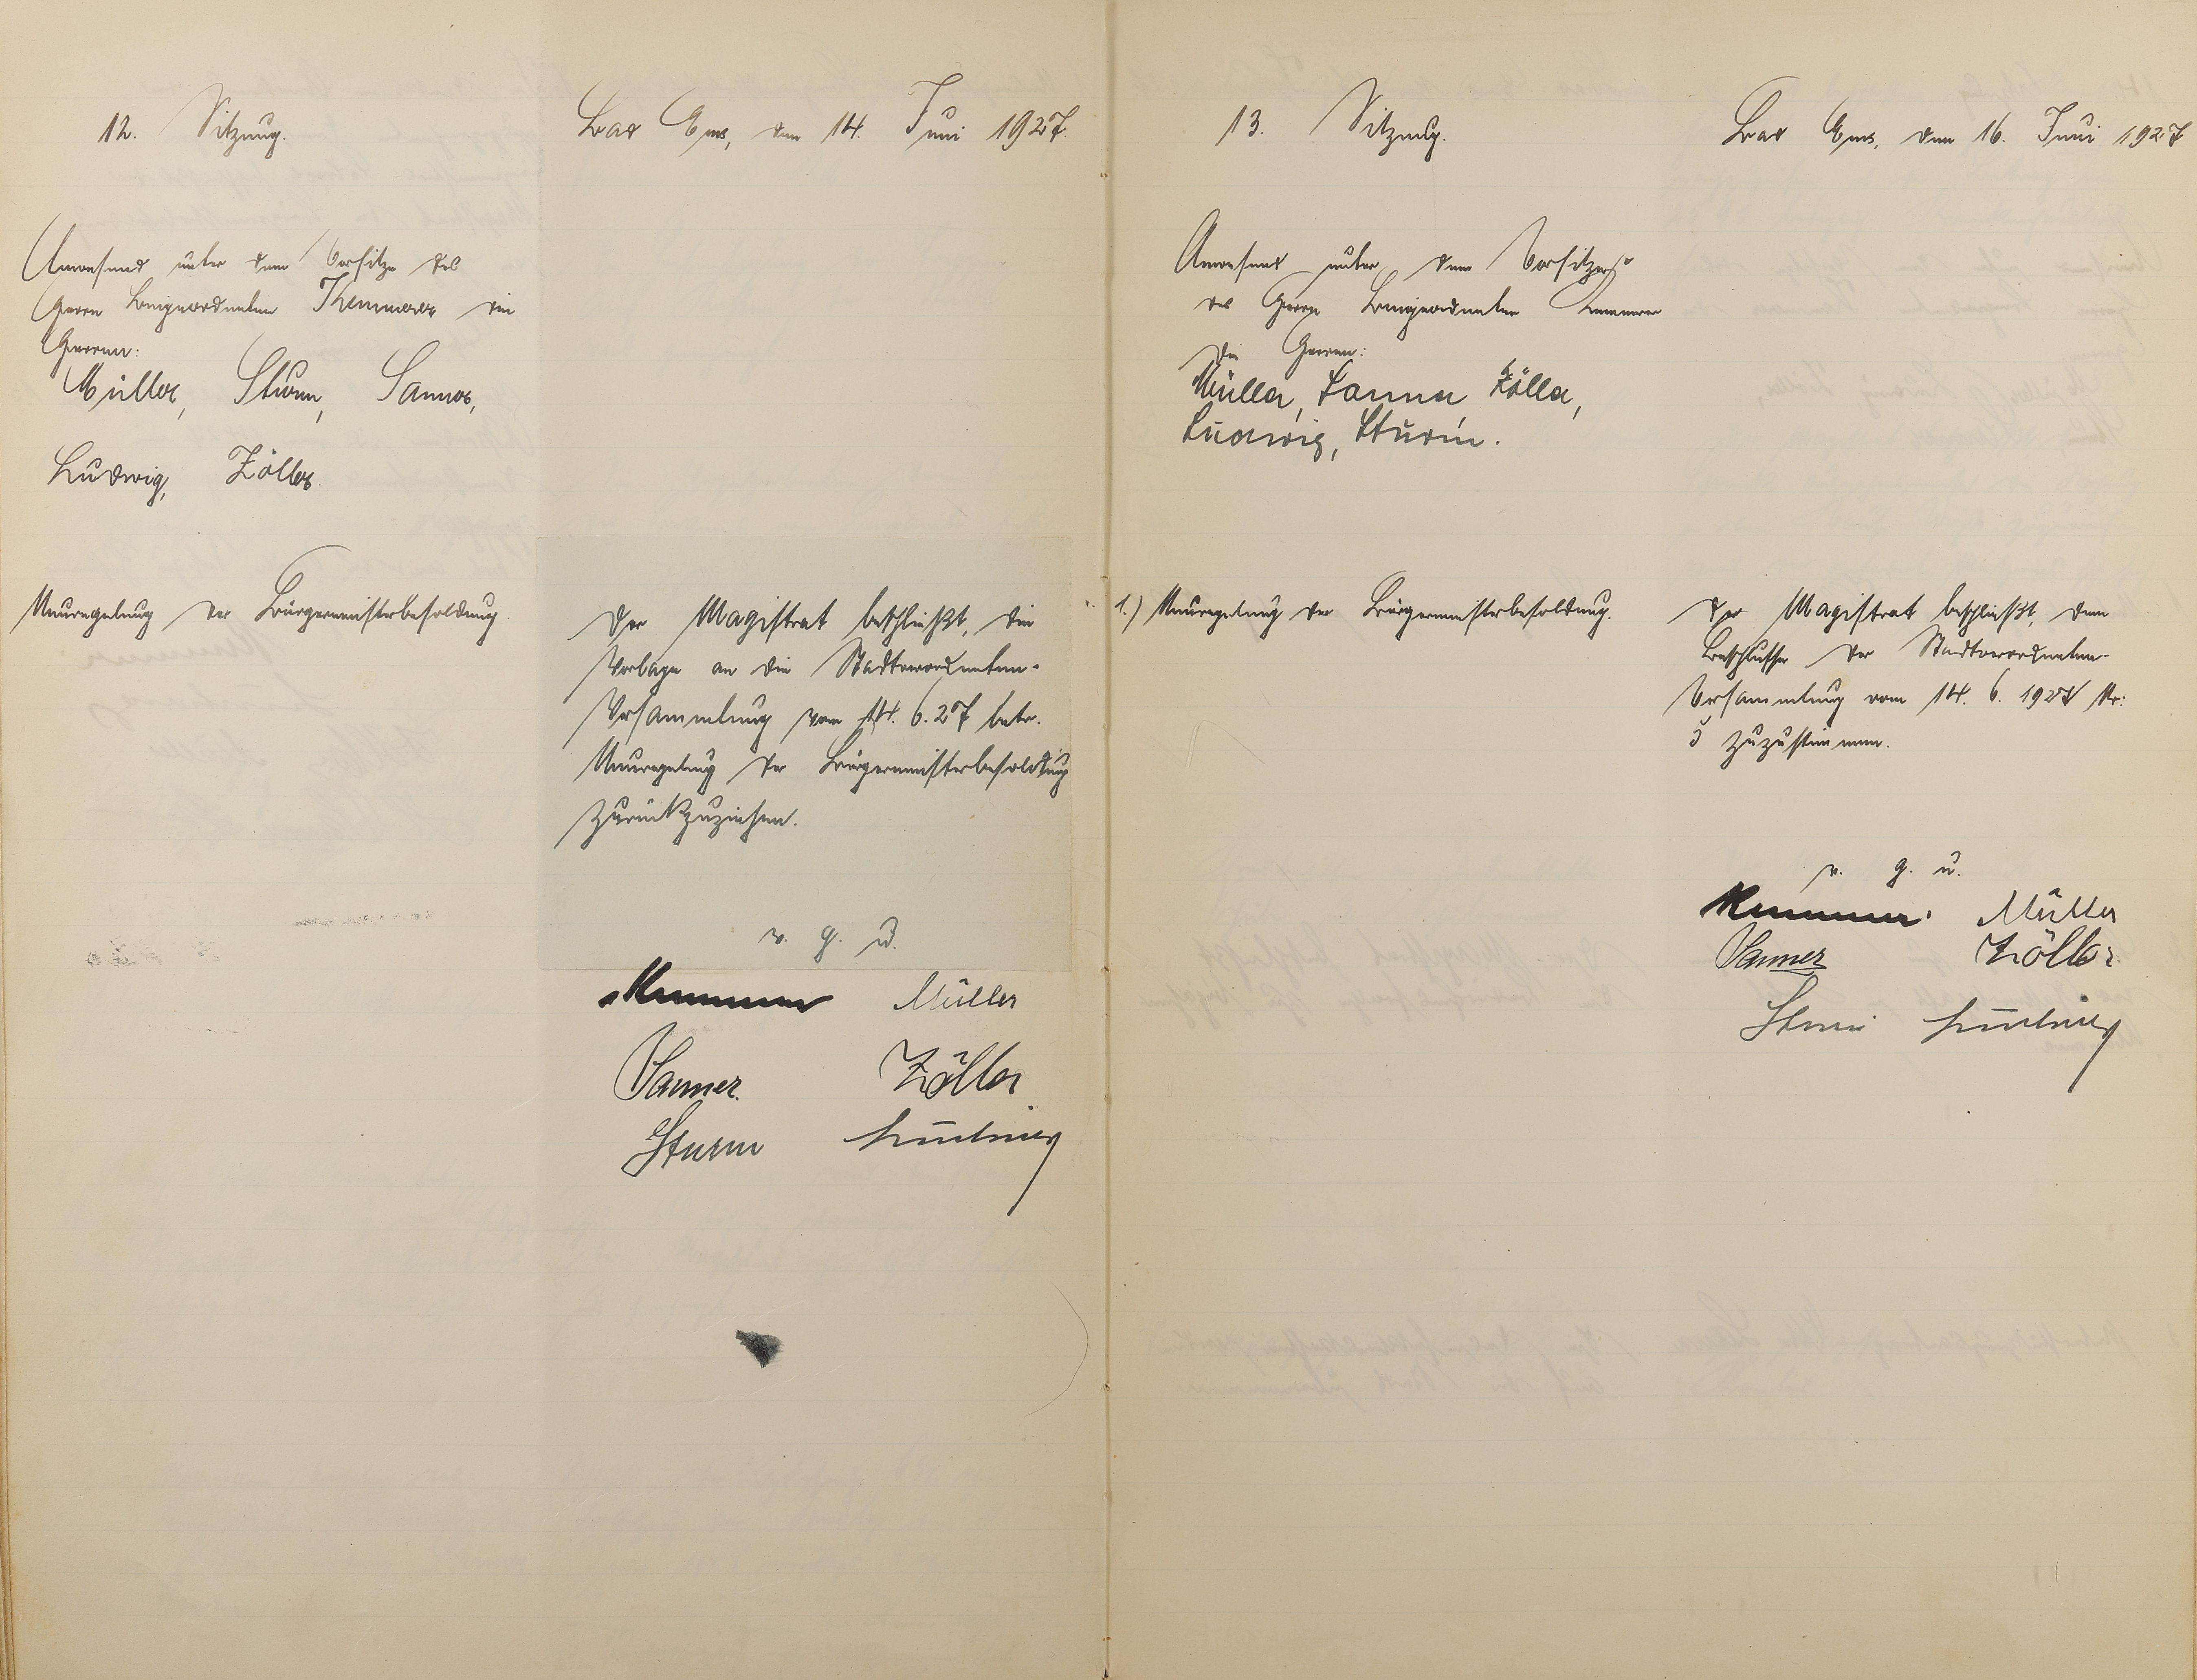 12. Sitzung.
Bad Ems, den 14. Juni 1927.
Anwesend unter dem Vorsitze des
Herrn Beigeordneten Kemmerer die
Herren:
Müller, Sturm, Sanner,
Ludwig, Zöller.
Neuregelung der Bürgermeisterbesoldung
Der Magistrat beschließt, die
Vorlage an die Stadtverordneten-
Versammlung vom 14. 6. 27 betr.
Neuregelung der Bürgermeisterbesoldung
zurückzuziehen.
v. g. u.
Müller
Sanner. Zöller
Sturm Ludwig
13. Sitzung.
Bad Ems, den 16. Juni 1927
Anwesend unter dem Vorsitze
des Herrn Beigeordneten
die Herren:
Müller, Sanner Zöller,
Ludwig, Sturm.
1.) Neuregelung der Bürgermeisterbesoldung.
Der Magistrat beschließt, dem
Beschlusse der Stadtverordneten-
Versammlung vom 14. 6. 1927 Nr:
3 zuzustimmen.
v. g. u.
Müller
Sanner Zöller
Sturm Ludwig